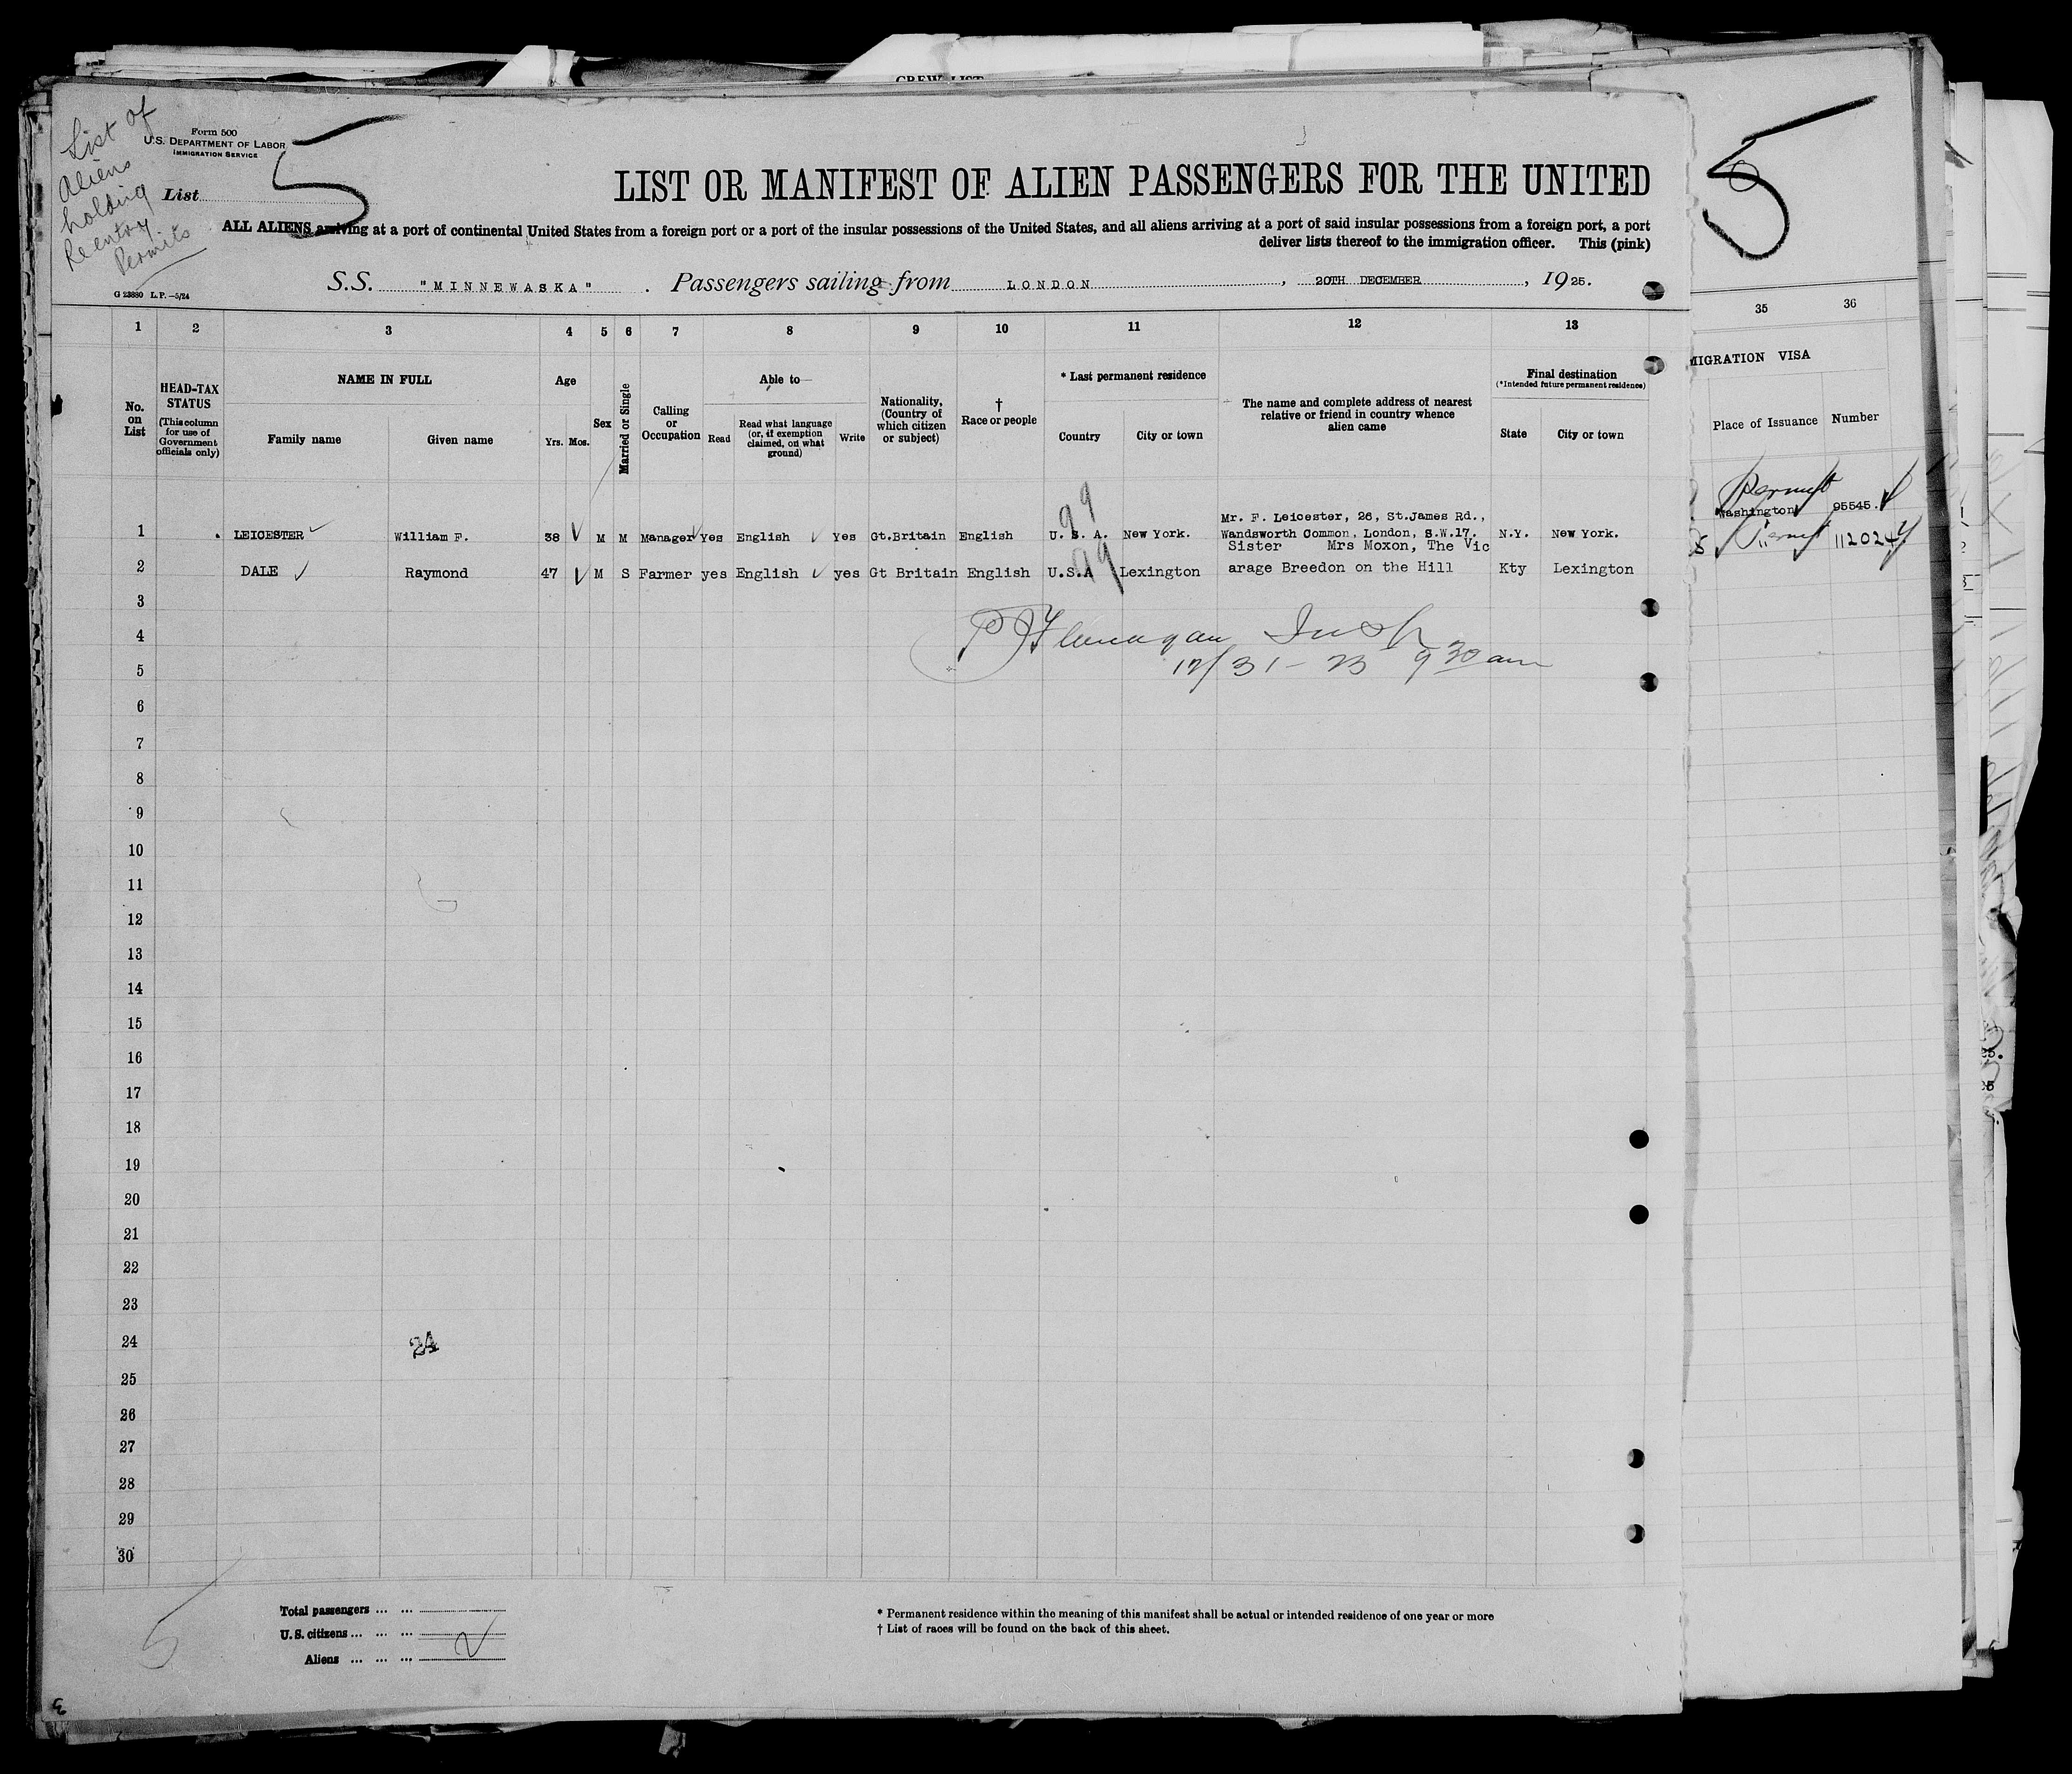 CREW LIST
List of
Aliens
holding
Reentry
Permits
Form 500
U.S. DEPARTMENT OF LABOR
IMMIGRATION SERVICE
List
5
5
LIST OR MANIFEST OF ALIEN PASSENGERS FOR THE UNITED
ALL ALIENS arriving at a port of continental United States from a foreign port or a port of the insular possessions of the United States, and all aliens arriving at a port of said insular possessions from a foreign port, a port
deliver lists thereof to the immigration officer. This (pink)
S.S. "MINNEWASKA". Passengers sailing from LONDON, 20TH DECEMBER, 1925.
G 23880 L.P.—5/24
1 2 3 4 5 6 7 8 9 10 11 12 13 35 36
No. on List
HEAD-TAX STATUS
(This column for use of Government officials only)
NAME IN FULL
Family name Given name
Age
Yrs. Mos.
Sex
Married or Single
Calling or Occupation
Able to—
Read
Read what language (or, if exemption claimed, on what ground)
Write
Nationality, (Country of which citizen or subject)
† Race or people
* Last permanent residence
Country City or town
The name and complete address of nearest relative or friend in country whence alien came
Final destination
(*Intended future permanent residence)
State City or town
MIGRATION VISA
Place of Issuance Number
99
Permit
Mr. F. Leicester, 26, St.James Rd.,
1 LEICESTER William F. 38 M M Manager Yes English Yes Gt.Britain English U. S. A. New York. Wandsworth Common, London, S.W.17. N.Y. New York. Washington 95545.
99
Sister Mrs Moxon, The Vic
2 DALE Raymond 47 M S Farmer yes English yes Gt Britain English U.S.A Lexington arage Breedon on the Hill Kty Lexington Permit 112024
3
4 Flanagan Insp
5 12/31-23 9 30 am
6
7
8
9
10
11
12
13
14
15
16
17
18
19
20
21
22
23
24 24
25
26
27
28
29
30
5
Total passengers ... ...
U.S. citizens ... ... ...
Aliens ... ... ...
* Permanent residence within the meaning of this manifest shall be actual or intended residence of one year or more
† List of races will be found on the back of this sheet.